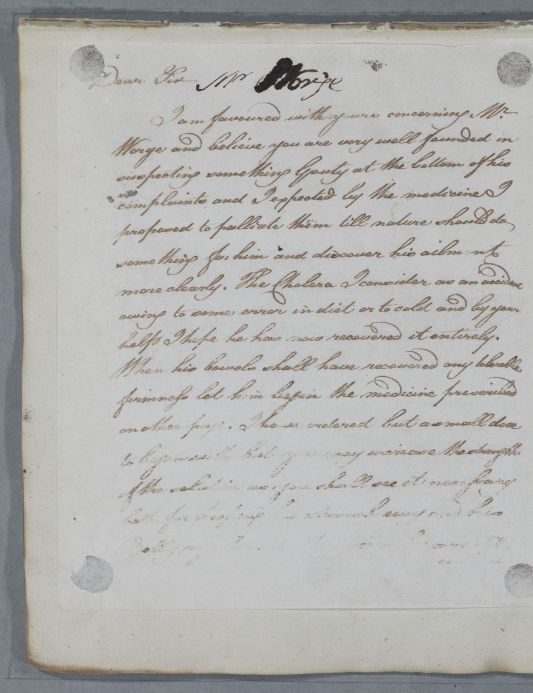 Dear Sir Mr Worge
I am favoured with yours concerning Mr
Worge and believe you are very well founded in
suspecting something Gouty at the bottom of his
complaints and I expected by the medicine I
proposed to palliate them till nature should do
something for him and discover his ailment
more clearly. The Cholera I consider as an accident
owing to some error in diet or to cold and by your
help I hope he has now recovered it entirely.
When his bowels shall have recovered any tolerable
firmness let him begin the medicine prescribed
on other page. I have ordered but a small dose
to begin with but you may increase the strength
of the solution as you shall see it necessary
both for keeping his stomach easy and his